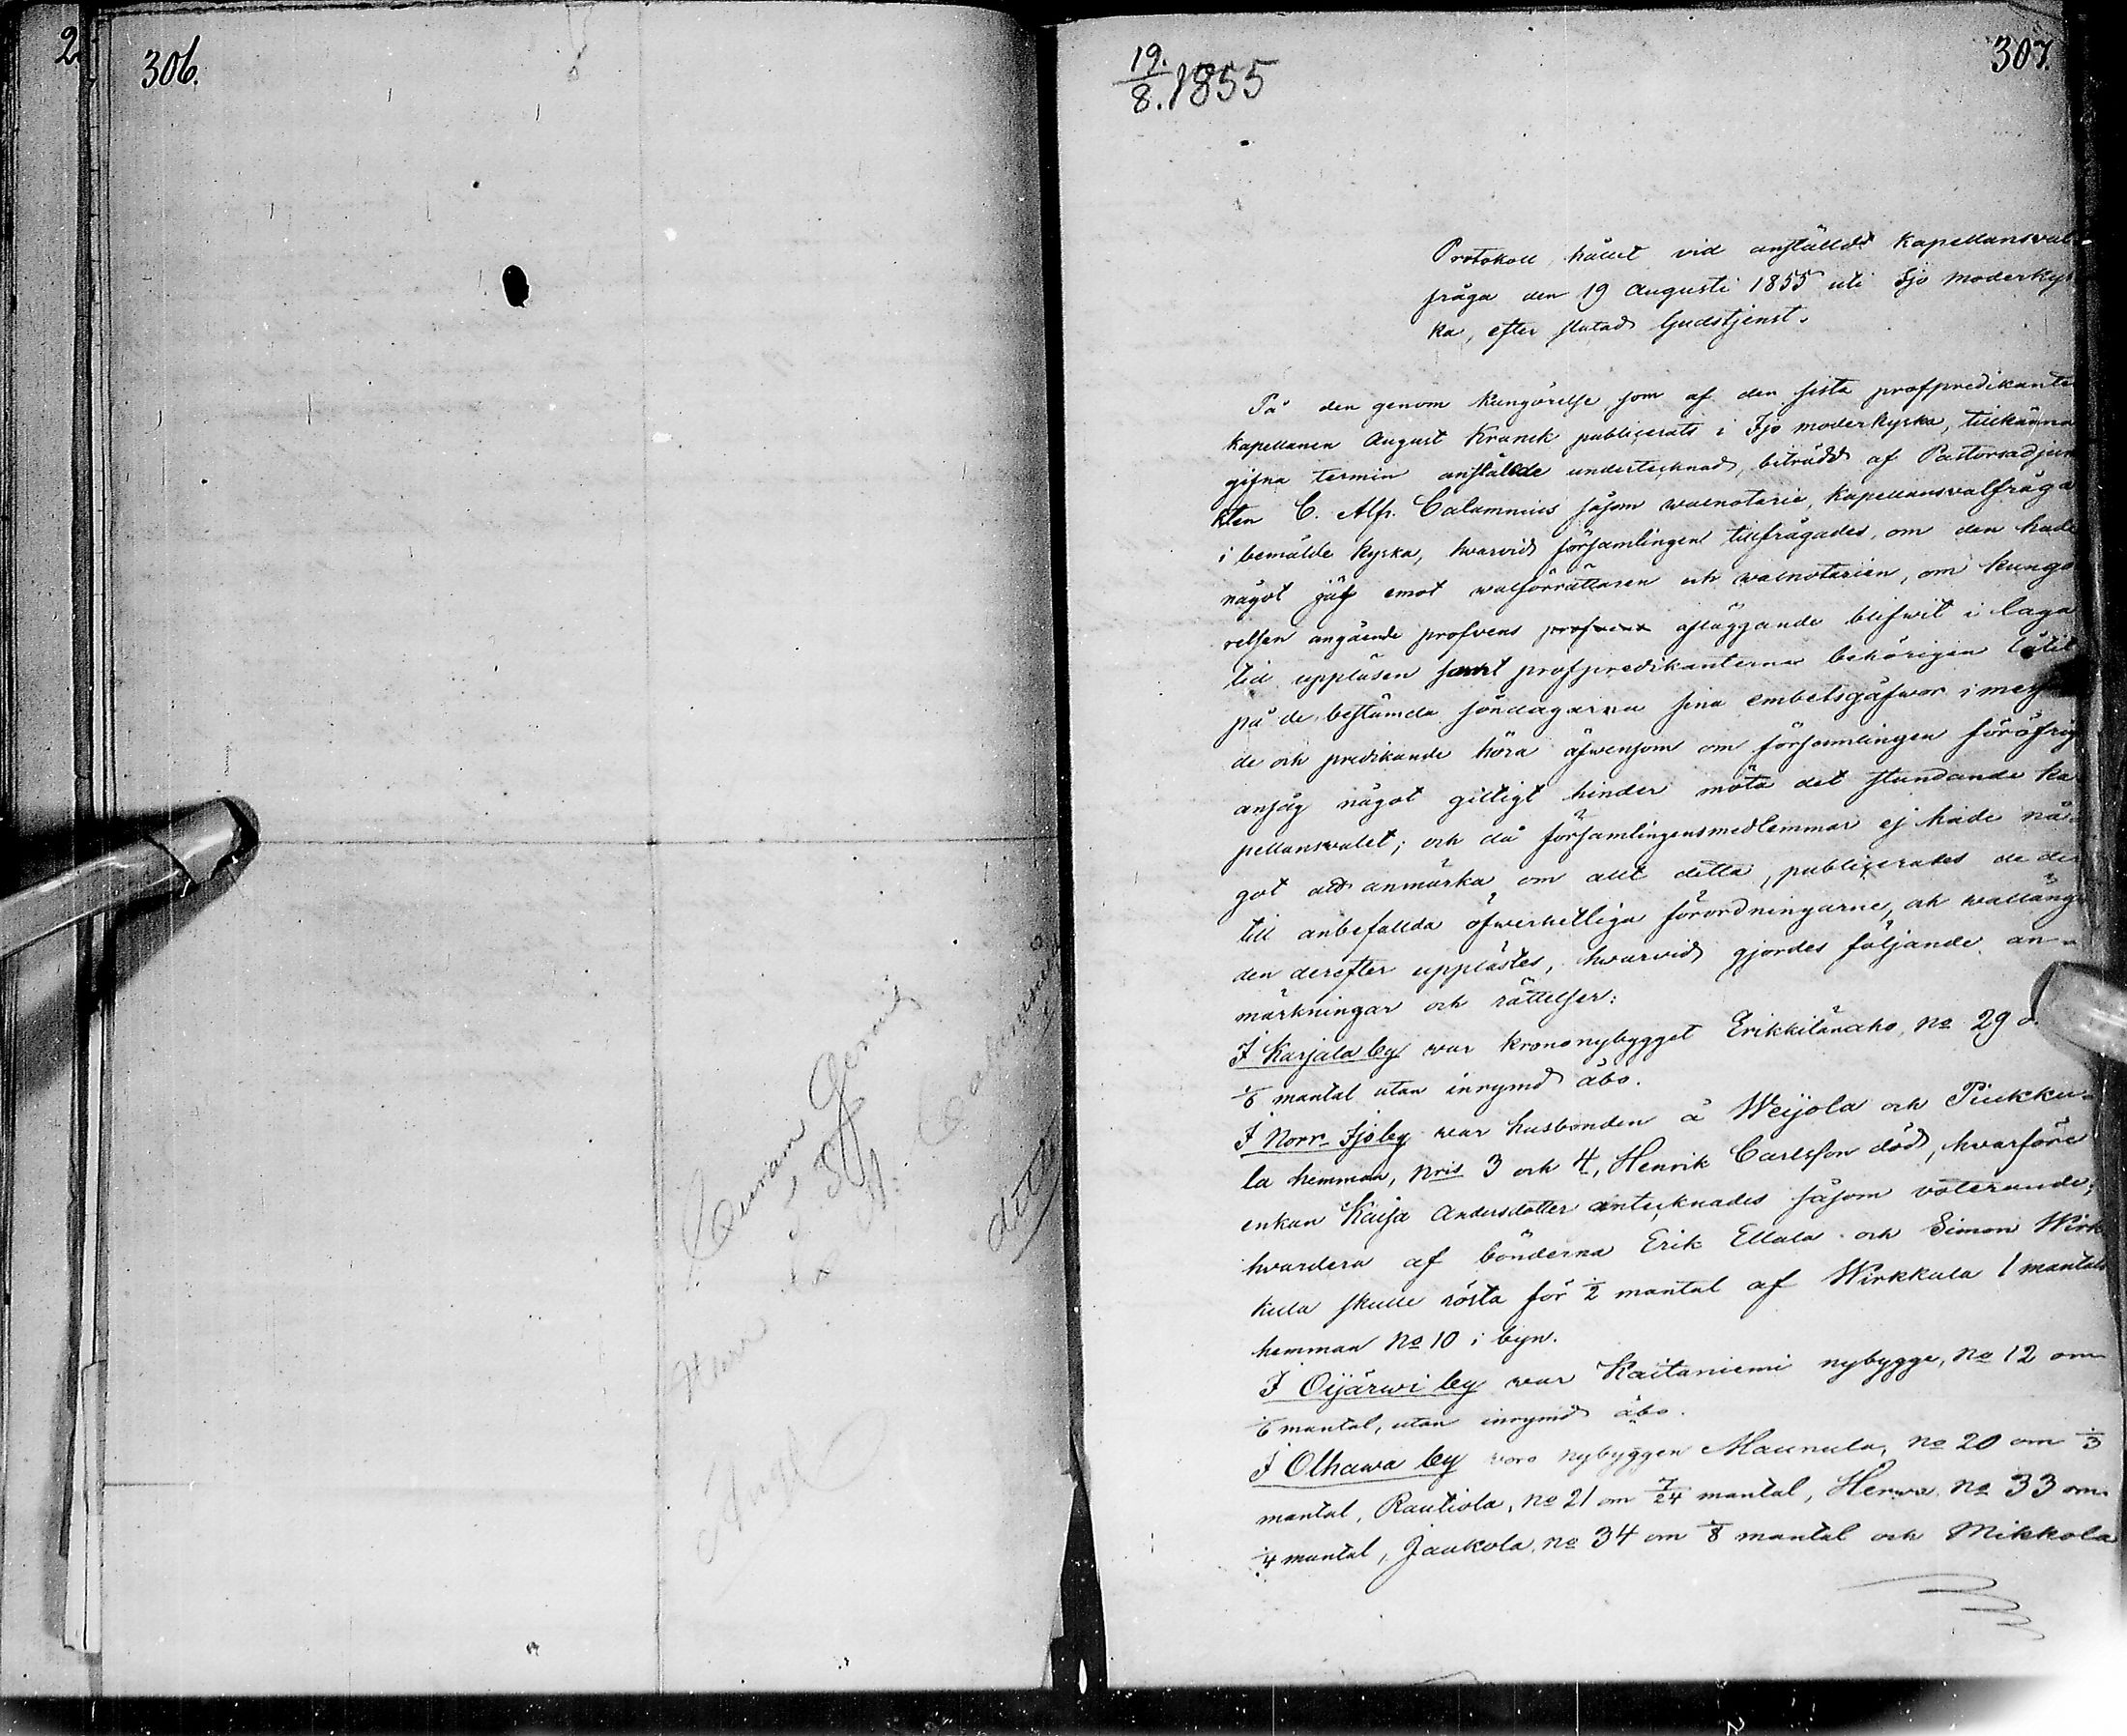 2
306.
19./8. 1855
307.
Protokoll, hållet vid anställd kapellansval
fråga den 19 Augusti 1855 uti Ijo moderkyr
ka, efter slutad Gudstjenst.
På den genom kungörelse, som af den sista profpredikanten
Kapellanen August Kranck publicerats i Ijo moderkyrka, tillkänna
gifna termin anställde undertecknad, biträdd af Pastorsadjun
kten C. Alfr. Calamnius såsom valnotarie, kapellansvalfråga
i bemälde kyrka, hvarvid församlingen tillfrågades, om den hade
något jäf emot valförrättaren och valnotarien, om kungö
relsen angående profvens profvens afläggande blifwit i laga
tid uppläsen samt profpredikanterna behörigen låtit
på de bestämda söndagarna sina embetsgåfwor i mes
de och predikande höra äfwensom om församlingen föröfrig
ansåg något giltigt hinder möta det stundande ka
pellansvalet; och då församlingensmedlemmar ej hade nå
got att anmärka om allt detta, publicerades de der
till anbefallda öfwerhetliga förordningarne, och valläng
den derefter upplästes, hvarvid gjordes följande an-
märkningar och rättelser:
I Karjala by var krononybygget Erikkilänaho, No 29 o
1/6 mantal utan inrymd åbo.
I Norr-Ijo by var husbonden å Weijola och Piukku-
la hemman, Nris 3 och 4, Henrik Carlsson död, hvarföre
enkan Kaisa Andersdotter antecknades såsom voterande;
hvardera af bönderna Erik Ellala och Simon Wirk
kula skulle rösta för 1/2 mantal af Wirkkula 1 mantals
hemman No 10 i byn.
I Oijärwi by var Kaitaniemi nybygge, No 12 om
1/6 mantal, utan inrymd åbo.
I Olhawa by voro nybyggen Maunula, No 20 om 1/3
mantal, Rautiola, No 21 om 7/24 mantal, Herwa No 33 om
1/4 mantal, Jaukola, No 34 om 1/8 mantal och Mikkola